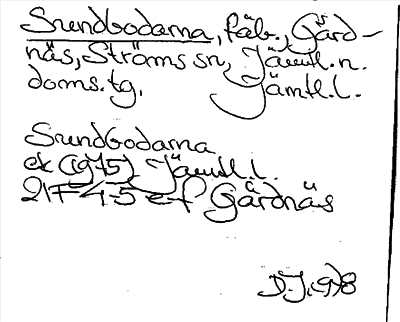 Sundbodarna, fäb., Gård-
näs, Ströms sn, Jämtl. n.
doms. tg. Jämtl. l.
Sundbodarna
ek (1975) Jämtl. l.
21F 4-5 e-f Gårdnäs
D.J. 1978